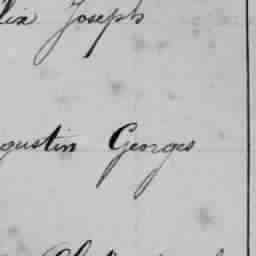 lix Joseph
gustin Georges